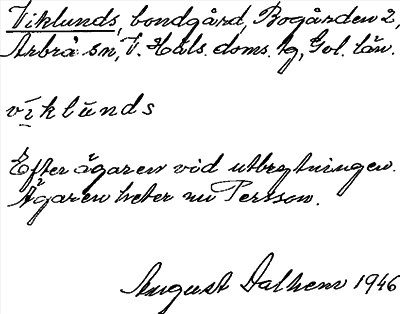 Viklunds, bondgård, Bogården 2,
Arbrå sn, V. Häls. doms. tg, Gvl. län.
viklunds
Efter ägaren vid utbrytningen.
Ägaren heter nu Persson.
August Dalhem 1946